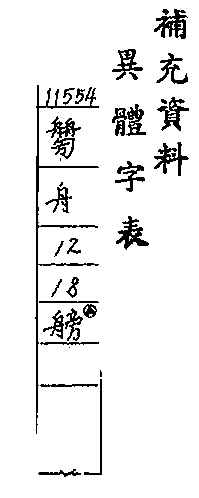 補充資料
異體字表
11554
舟
12
18
艕Ⓐ